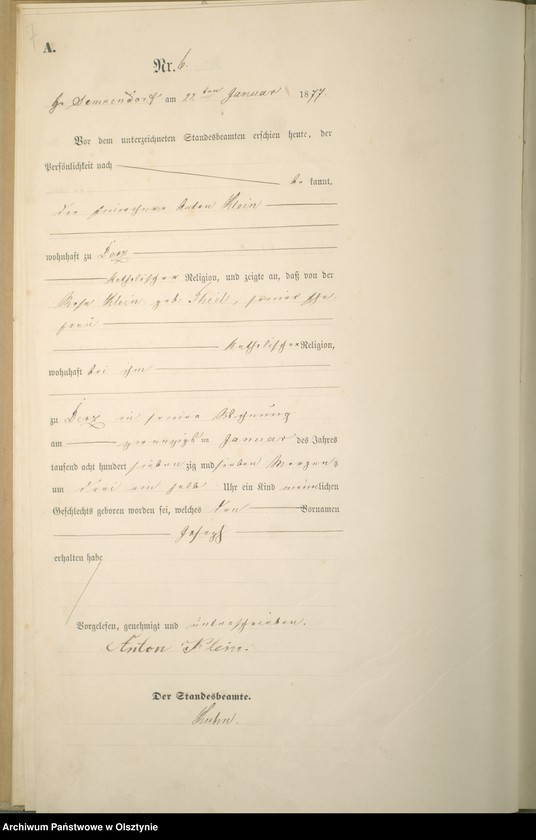 A.
Nr. 6.
Gr Lemkendorf am 22 ten Januar 1877.
Vor dem unterzeichneten Standesbeamten erschien heute, der
Persönlichkeit nach
be kannt,
der Einwohner Anton Klein
wohnhaft zu Derz
katholischer Religion, und zeigte an, daß von der
Rosa Klein geb. , seiner Ehe
frau
katholischer Religion,
wohnhaft bei ihm
zu Derz in seiner Wohnung
am zwanzigsten Januar des Jahres
tausend acht hundert sieben zig und sieben Morgens
um drei ein halb Uhr ein Kind männlichen
Geschlechts geboren worden sei, welches den Vornamen
Joseph
erhalten habe
Vorgelesen, genehmigt und unterschrieben.
Anton Klein.
Der Standesbeamte.
Archiwum Państwowe w Olsztynie